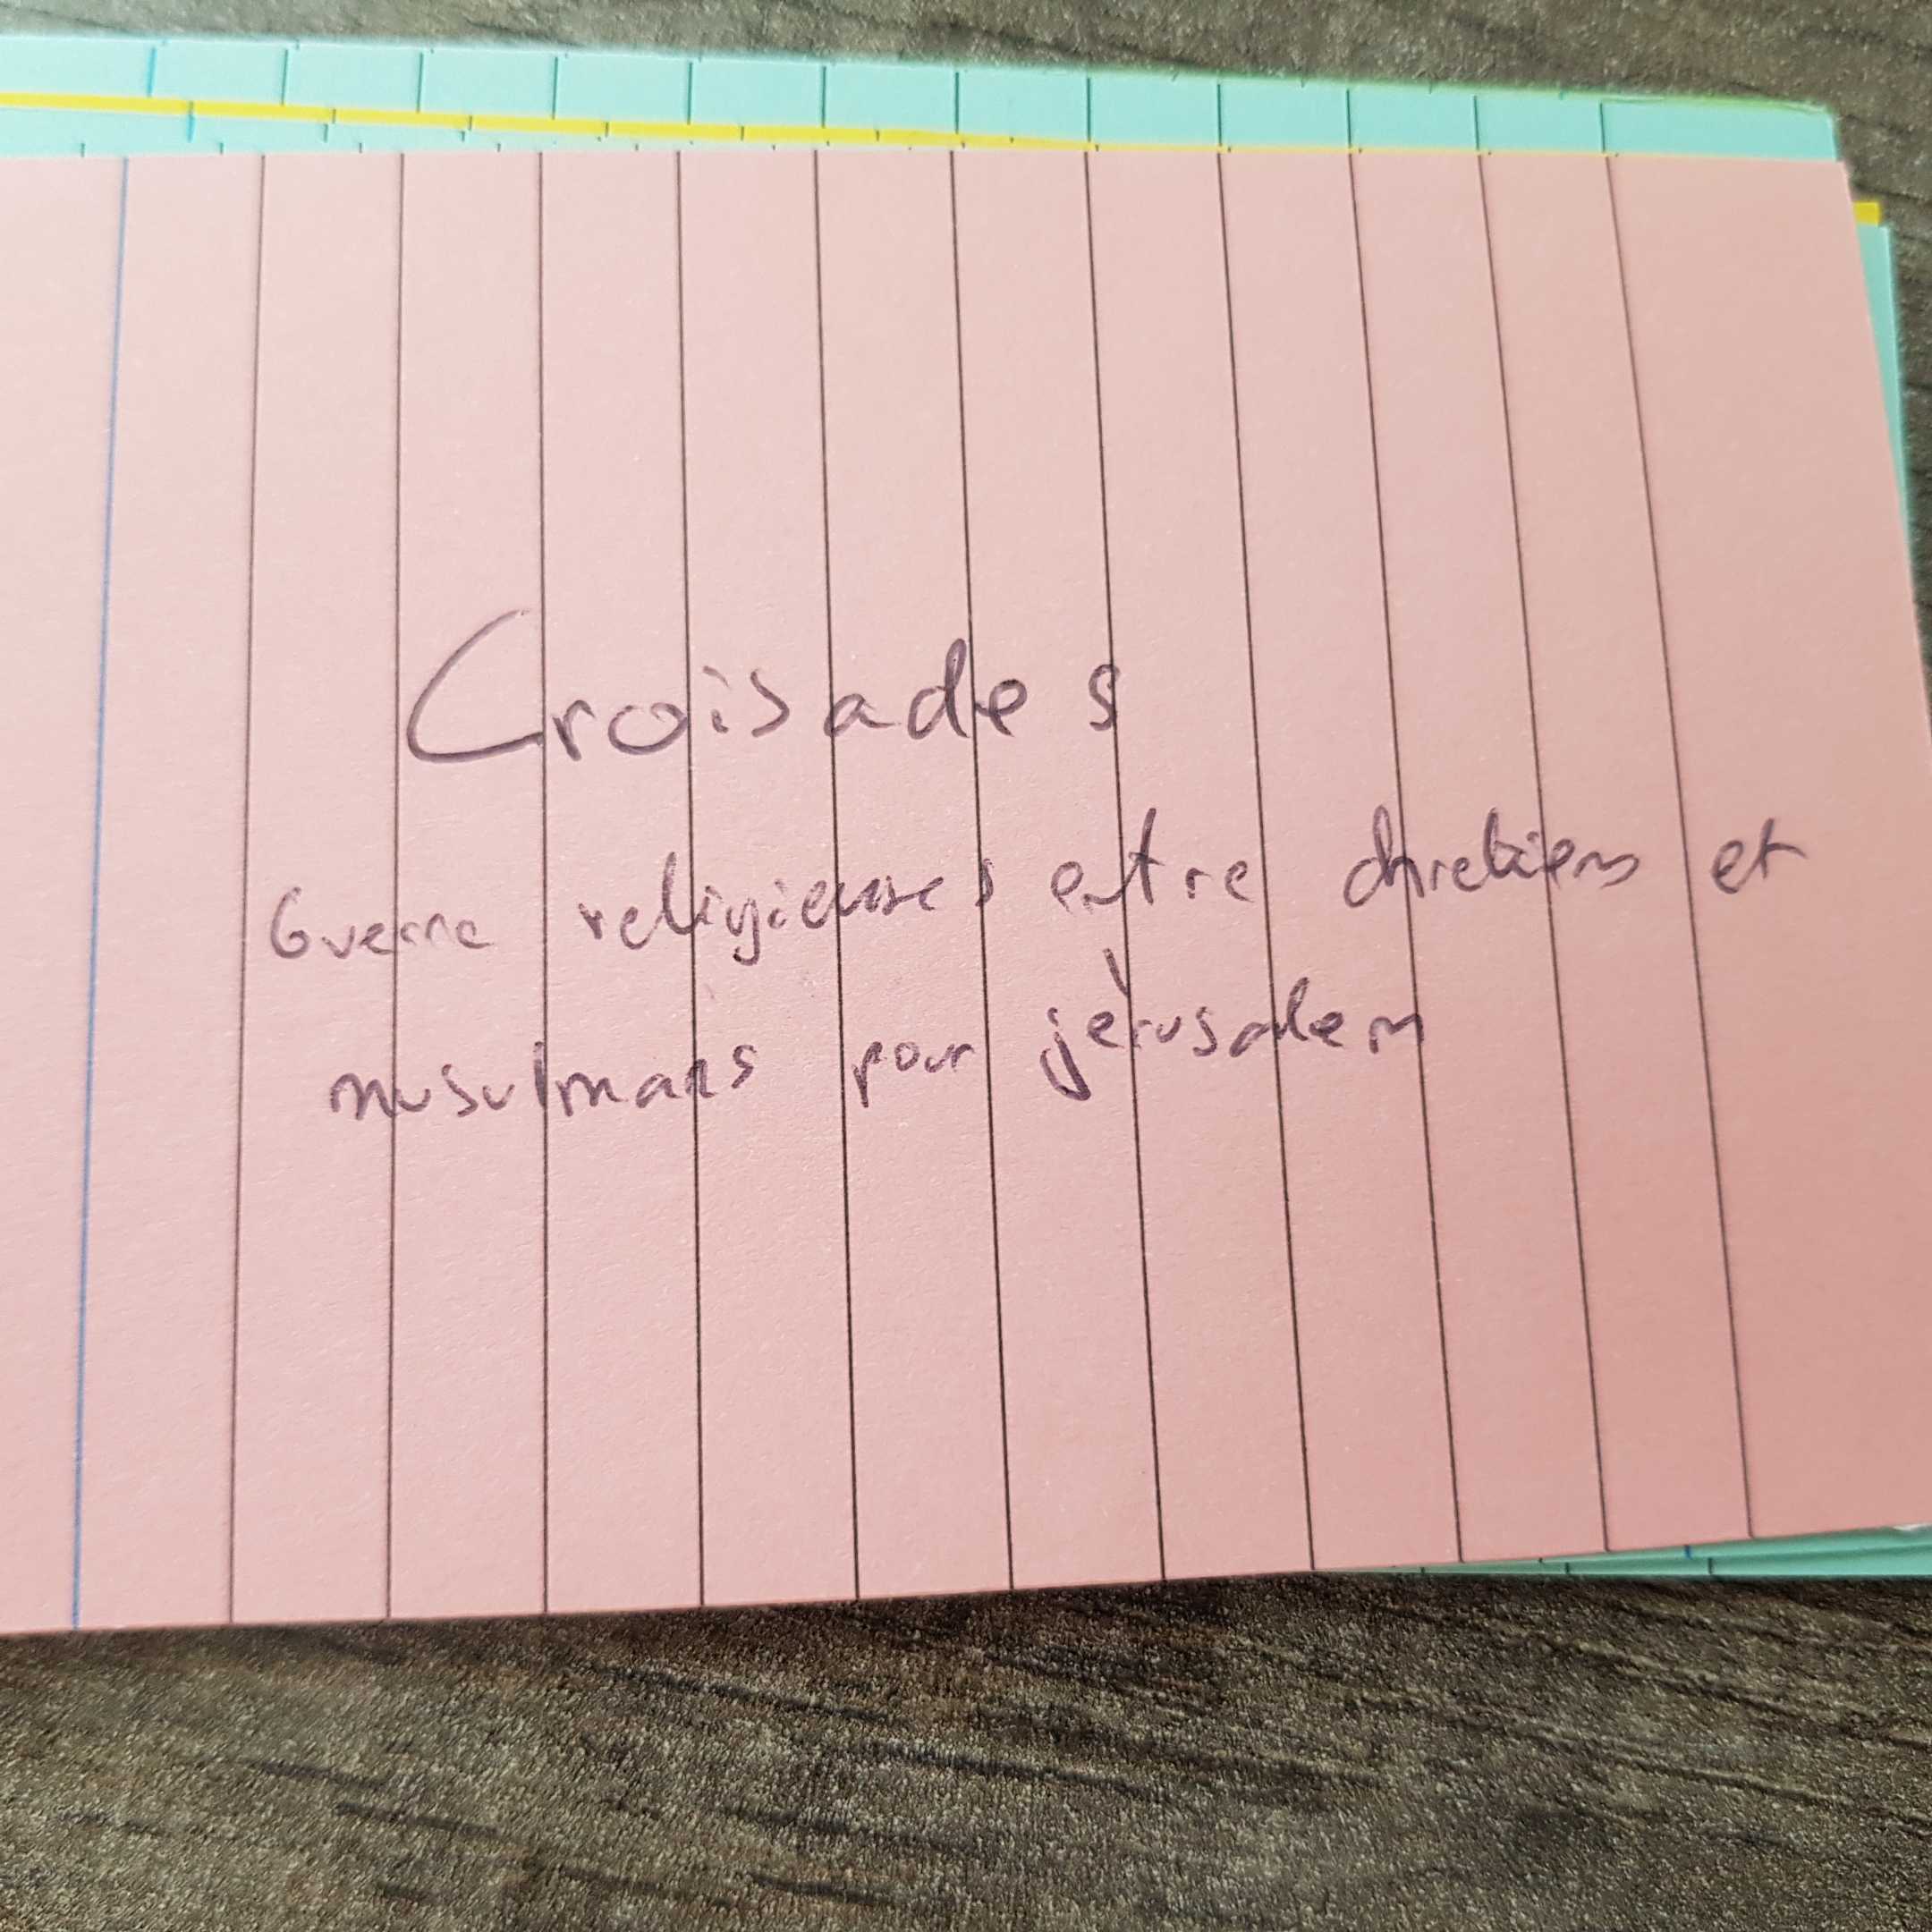 Croisades
Guerre religieuses entre chretiens et
musulmans pour jèrusalem